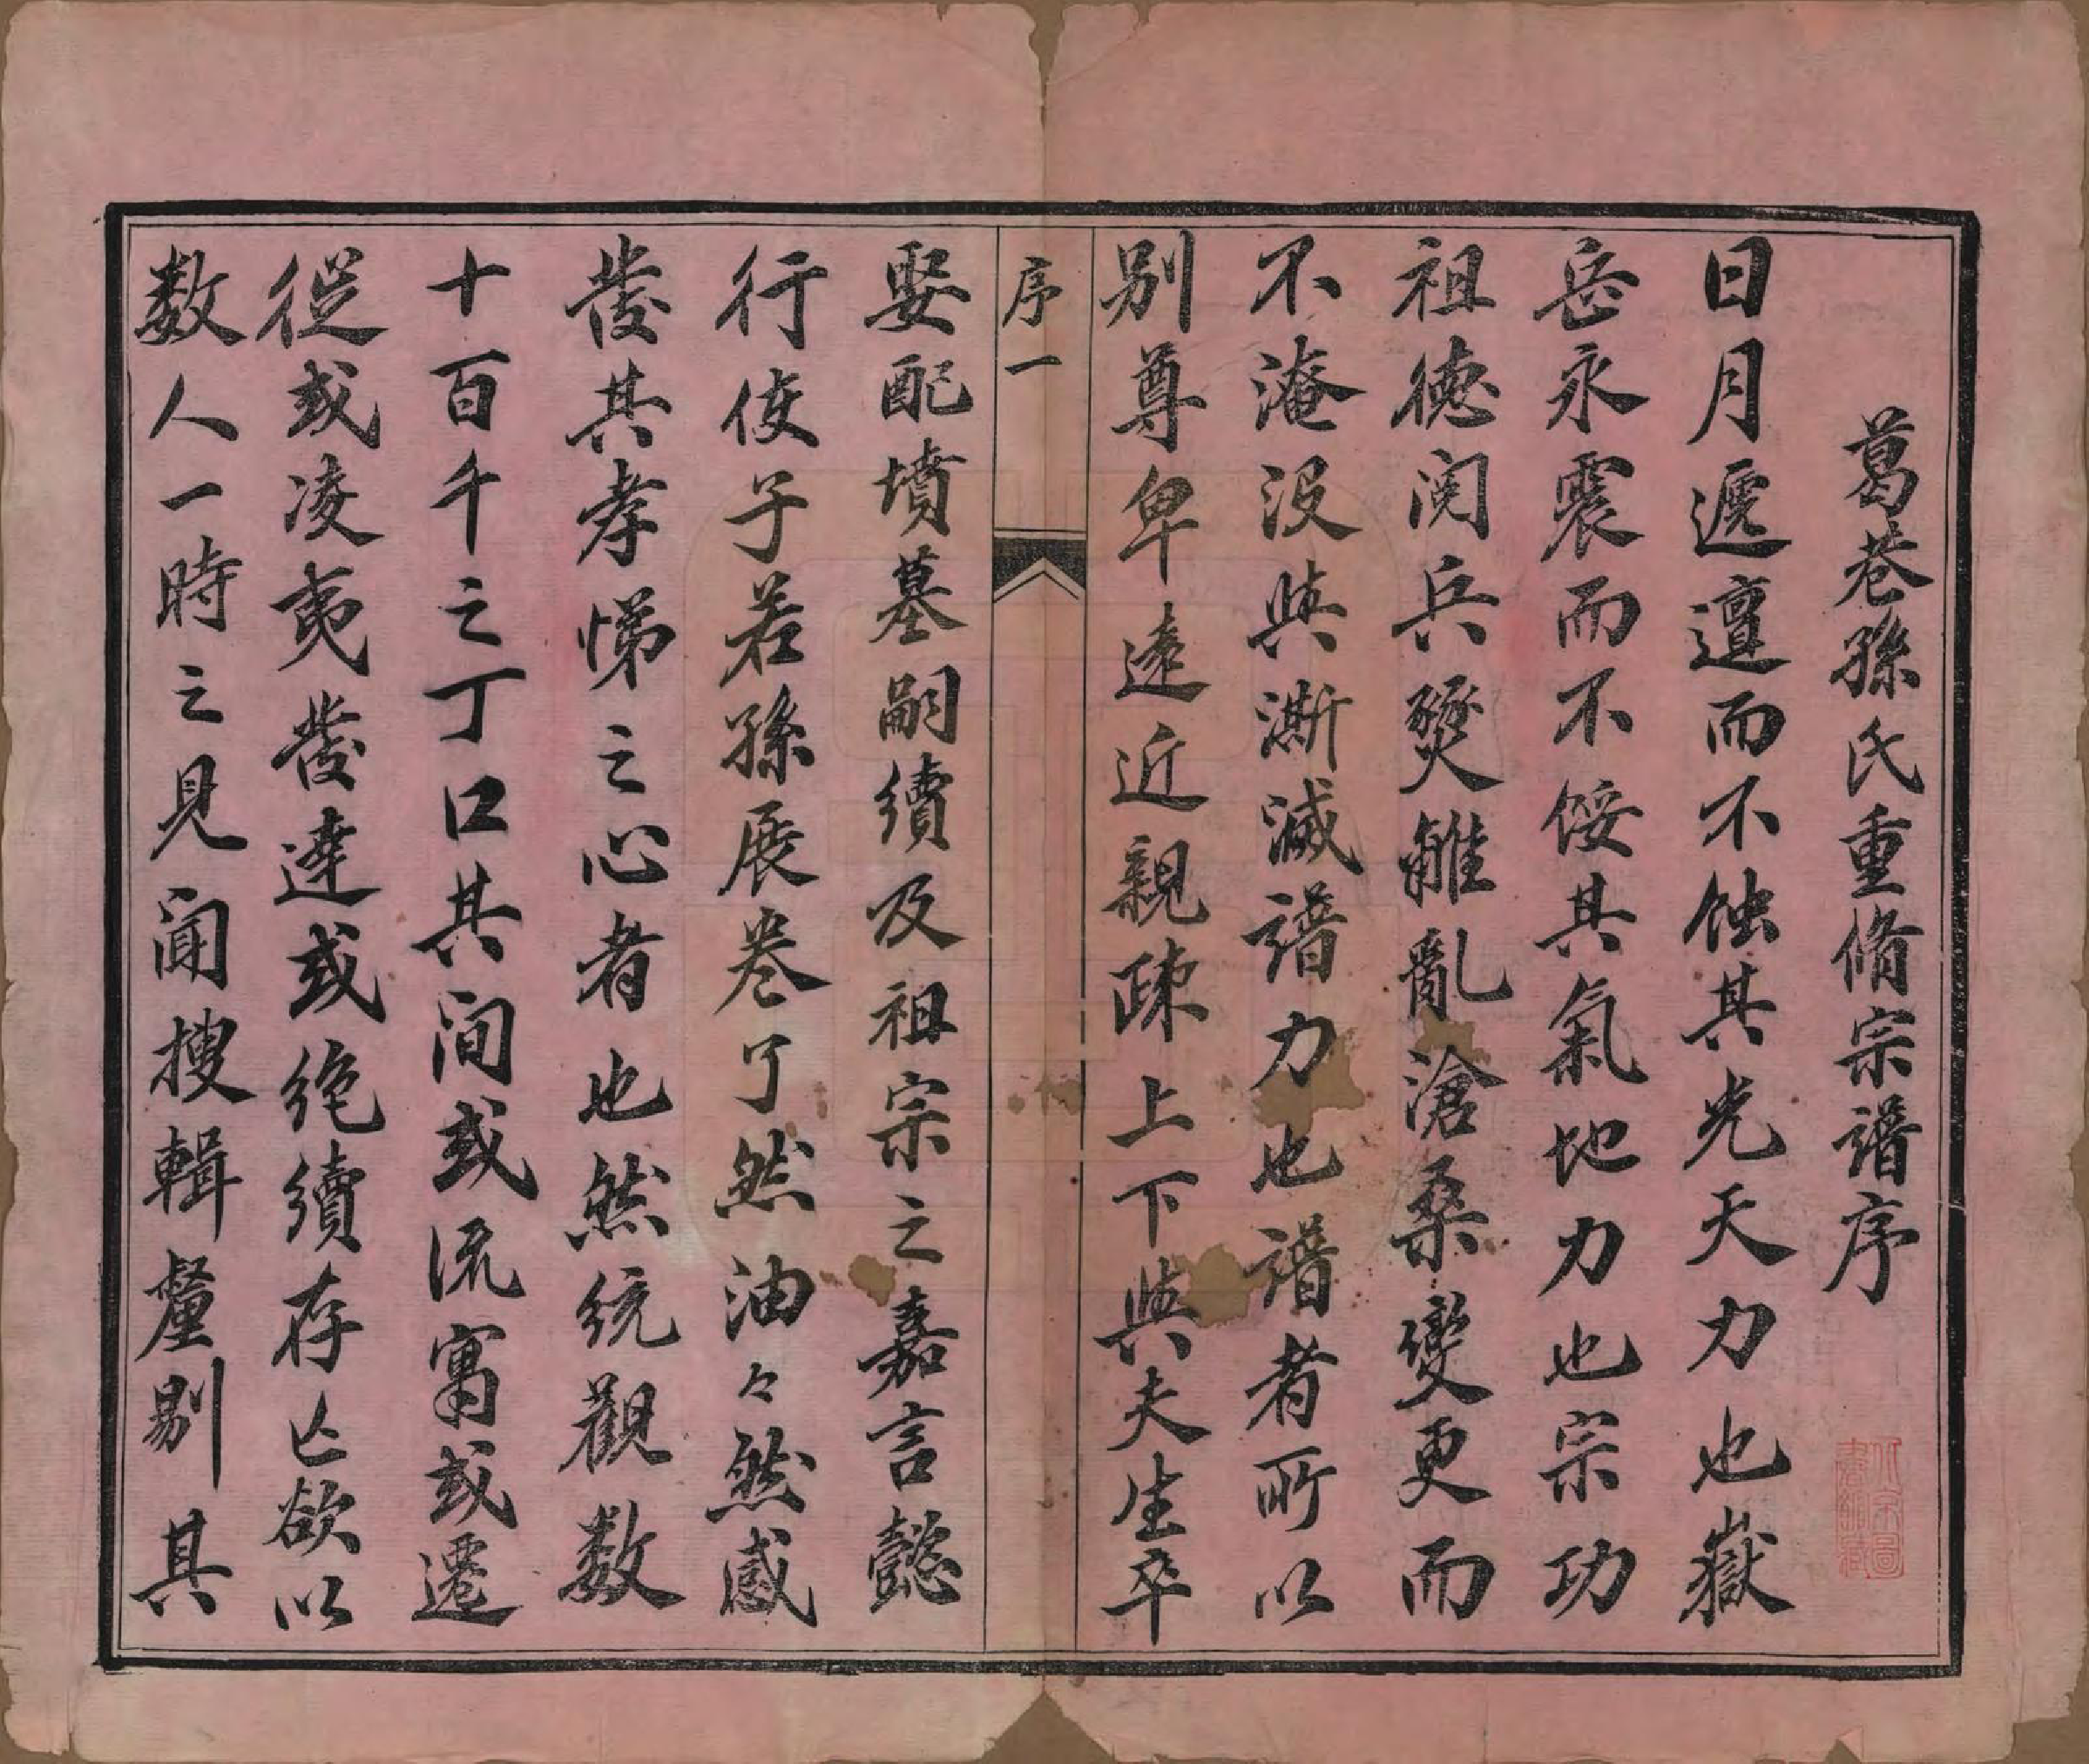 葛巷孫氏重脩宗譜序
日月遞邅而不蝕其光天力也嶽
岳永震而不餒其氣地力也宗功
祖德閱兵燹離亂滄桑變更而
不淹没與澌滅譜力也譜者所以
别尊卑遠近親疎上下與夫生卒
序一
娶配墳墓嗣續及祖宗之嘉言懿
行使子若孫展卷了然油々然感
發其孝悌之心者也然統觀数
十百千之丁口其间或流寓或遷
從或凌夷發達或絶續存亡欲以
数人一時之見聞搜輯釐剔其